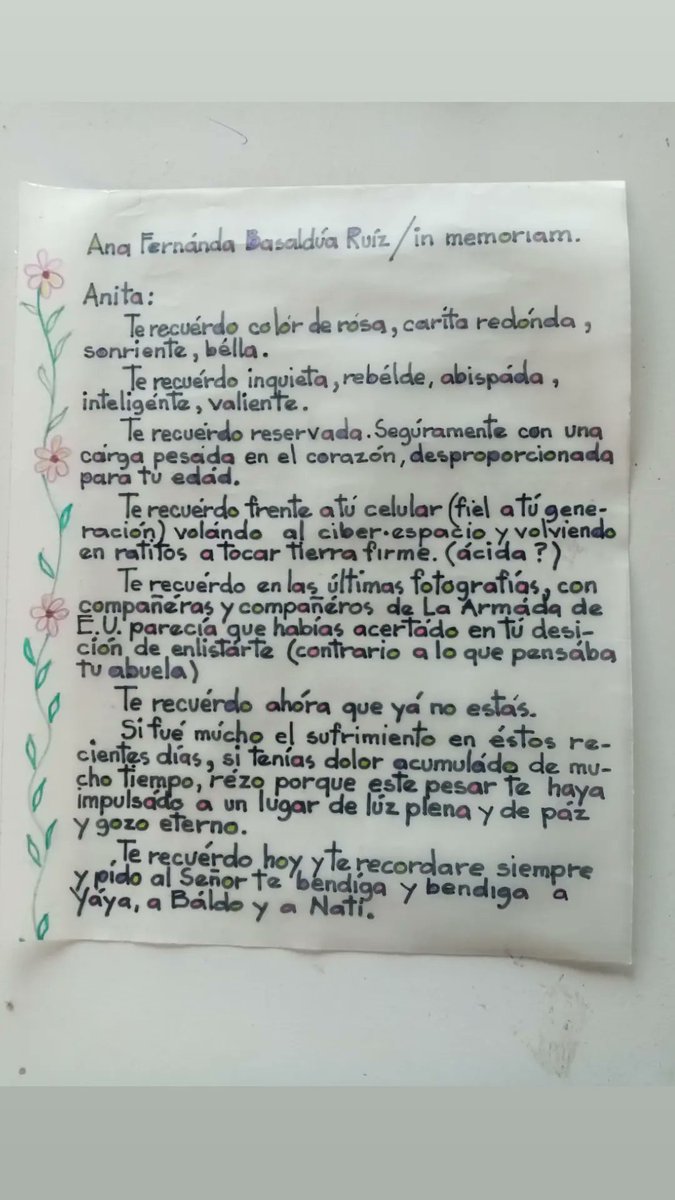 Ana Fernánda Basaldúa Ruíz/in memoriam.
Anita:
Te recuérdo colór de rósa, caríta redónda,
sonriente, bélla.
Te recuérdo inquieta, rebélde, abispáda,
inteligénte, valiente.
Te recuerdo reservada. Segúramente con una
cárga pesáda en el corazón, desproporcionada
para tu edád.
Te recuérdo frente a tú celular (fiel a tú gene-
ración) volándo al ciber-espacio y volviendo
en ratitos a tocar tierra firme. (ácida?)
Te recuérdo en las últimas fotografías, con
compañéras y compañéros de La Armáda de
E.U. parecía que habías acertádo en tú desi-
ción de enlistárte (contrario a lo que pensába
tu abuela)
Te recuérdo ahóra que yá no estás.
Si fué múcho el sufrimiento en éstos re-
cientes días, si tenías dolor acumuládo de mu-
cho tiempo, rézo porque este pesar te haya
impulsado a un lugar de lúz plena y de páz
y gozo eterno.
Te recuérdo hoy y te recordare siempre
y pído al Señor te bendíga y bendiga a
Yáya, a Báldo y a Nati.